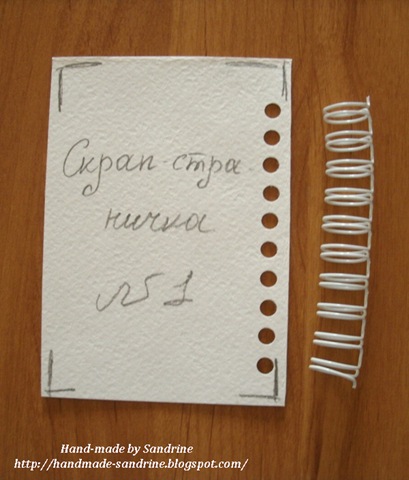 Скрап-стра-
ничка
№ 1
Hand-made by Sandrine
http://handmade-sandrine.blogspot.com/